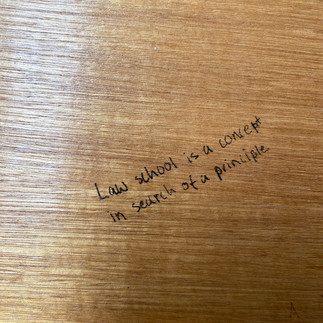 Law school is a concept
in search of a principle